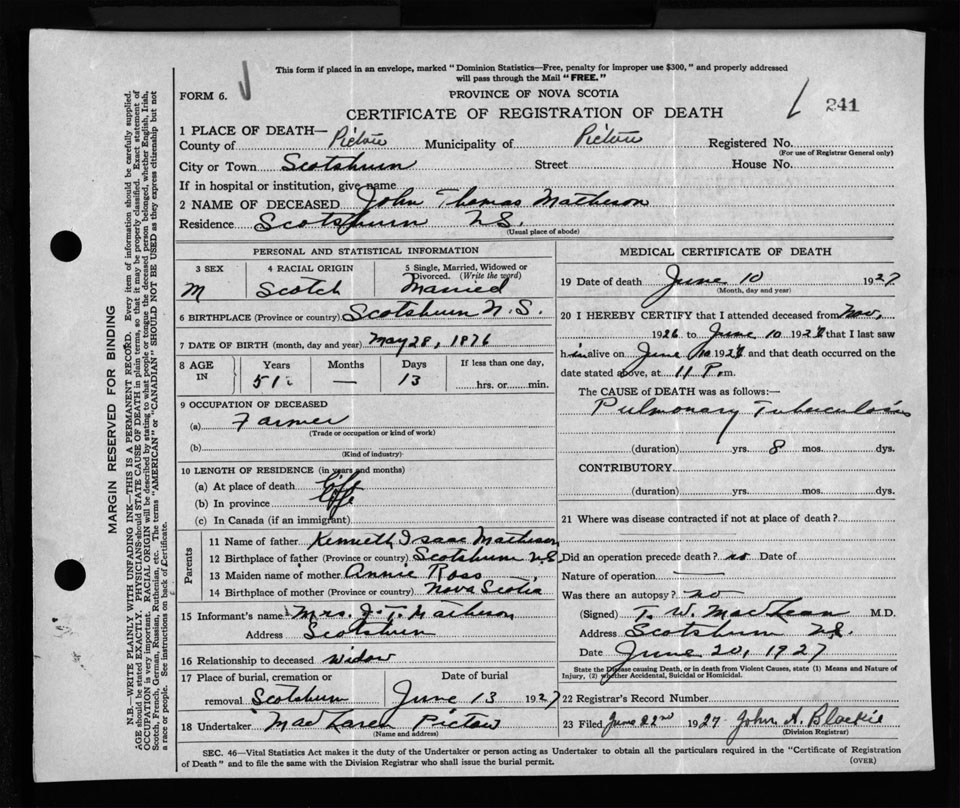 This form if placed in an envelope, marked "Dominion Statistics—Free, penalty for improper use $300," and properly addressed
will pass through the Mail "FREE."
FORM 6.
PROVINCE OF NOVA SCOTIA
CERTIFICATE OF REGISTRATION OF DEATH
241
1 PLACE OF DEATH—
County of Pictou Municipality of Pictou Registered No.
(For use of Registrar General only)
City or Town Scotsburn Street House No.
If in hospital or institution, give name
2 NAME OF DECEASED John Thomas Matheson
Residence Scotsburn N.S.
(Usual place of abode)
PERSONAL AND STATISTICAL INFORMATION
3 SEX 4 RACIAL ORIGIN 5 Single, Married, Widowed or
Divorced. (Write the word)
M Scotch Married
6 BIRTHPLACE (Province or country) Scotsburn N.S.
7 DATE OF BIRTH (month, day and year) May 28, 1876
8 AGE IN Years Months Days If less than one day,
51 — 13 hrs. or min.
9 OCCUPATION OF DECEASED
(a) Farmer
(Trade or occupation or kind of work)
(b)
(Kind of industry)
10 LENGTH OF RESIDENCE (in years and months)
(a) At place of death Life
(b) In province Life
(c) In Canada (if an immigrant)
Parents
11 Name of father Kenneth Isaac Matheson
12 Birthplace of father (Province or country) Scotsburn N.S.
13 Maiden name of mother Annie Ross
14 Birthplace of mother (Province or country) Nova Scotia
15 Informant's name Mrs. J. T. Matheson
Address Scotsburn
16 Relationship to deceased widow
17 Place of burial, cremation or Date of burial
removal Scotsburn June 13 1927
18 Undertaker MacLaren Pictou
(Name and address)
MEDICAL CERTIFICATE OF DEATH
19 Date of death June 10 1927
(Month, day and year)
20 I HEREBY CERTIFY that I attended deceased from Nov,
1926 to June 10 1927 that I last saw
him alive on June 10 1927 and that death occurred on the
date stated above, at 11 P.m.
The CAUSE OF DEATH was as follows:—
Pulmonary Tuberculosis
(duration) yrs. 8 mos. dys.
CONTRIBUTORY
(duration) yrs. mos. dys.
21 Where was disease contracted if not at place of death?
Did an operation precede death? no Date of
Nature of operation —
Was there an autopsy? no
(Signed) T. W. MacLean M.D.
Address Scotsburn N.S.
Date June 20, 1927
State the Disease causing Death, or in death from Violent Causes, state (1) Means and Nature of
Injury, (2) whether Accidental, Suicidal or Homicidal.
22 Registrar's Record Number
23 Filed June 22nd 1927 John A. Blaikie
(Division Registrar)
SEC. 46—Vital Statistics Act makes it the duty of the Undertaker or person acting as Undertaker to obtain all the particulars required in the "Certificate of Registration
of Death" and to file the same with the Division Registrar who shall issue the burial permit.
(OVER)
MARGIN RESERVED FOR BINDING
N.B.—WRITE PLAINLY WITH UNFADING INK—THIS IS A PERMANENT RECORD. Every item of information should be carefully supplied.
AGE should be stated EXACTLY. PHYSICIANS should STATE CAUSE OF DEATH in plain terms, so that it may be properly classified. Exact statement of
OCCUPATION is very important. RACIAL ORIGIN will be described by stating to what people or tongue the deceased person belonged, whether English, Irish,
Scotch, French, German, Russian, Ruthenian, etc. The terms "AMERICAN" or "CANADIAN" SHOULD NOT BE USED as they express citizenship but not
a race or people. See instructions on back of Certificate.